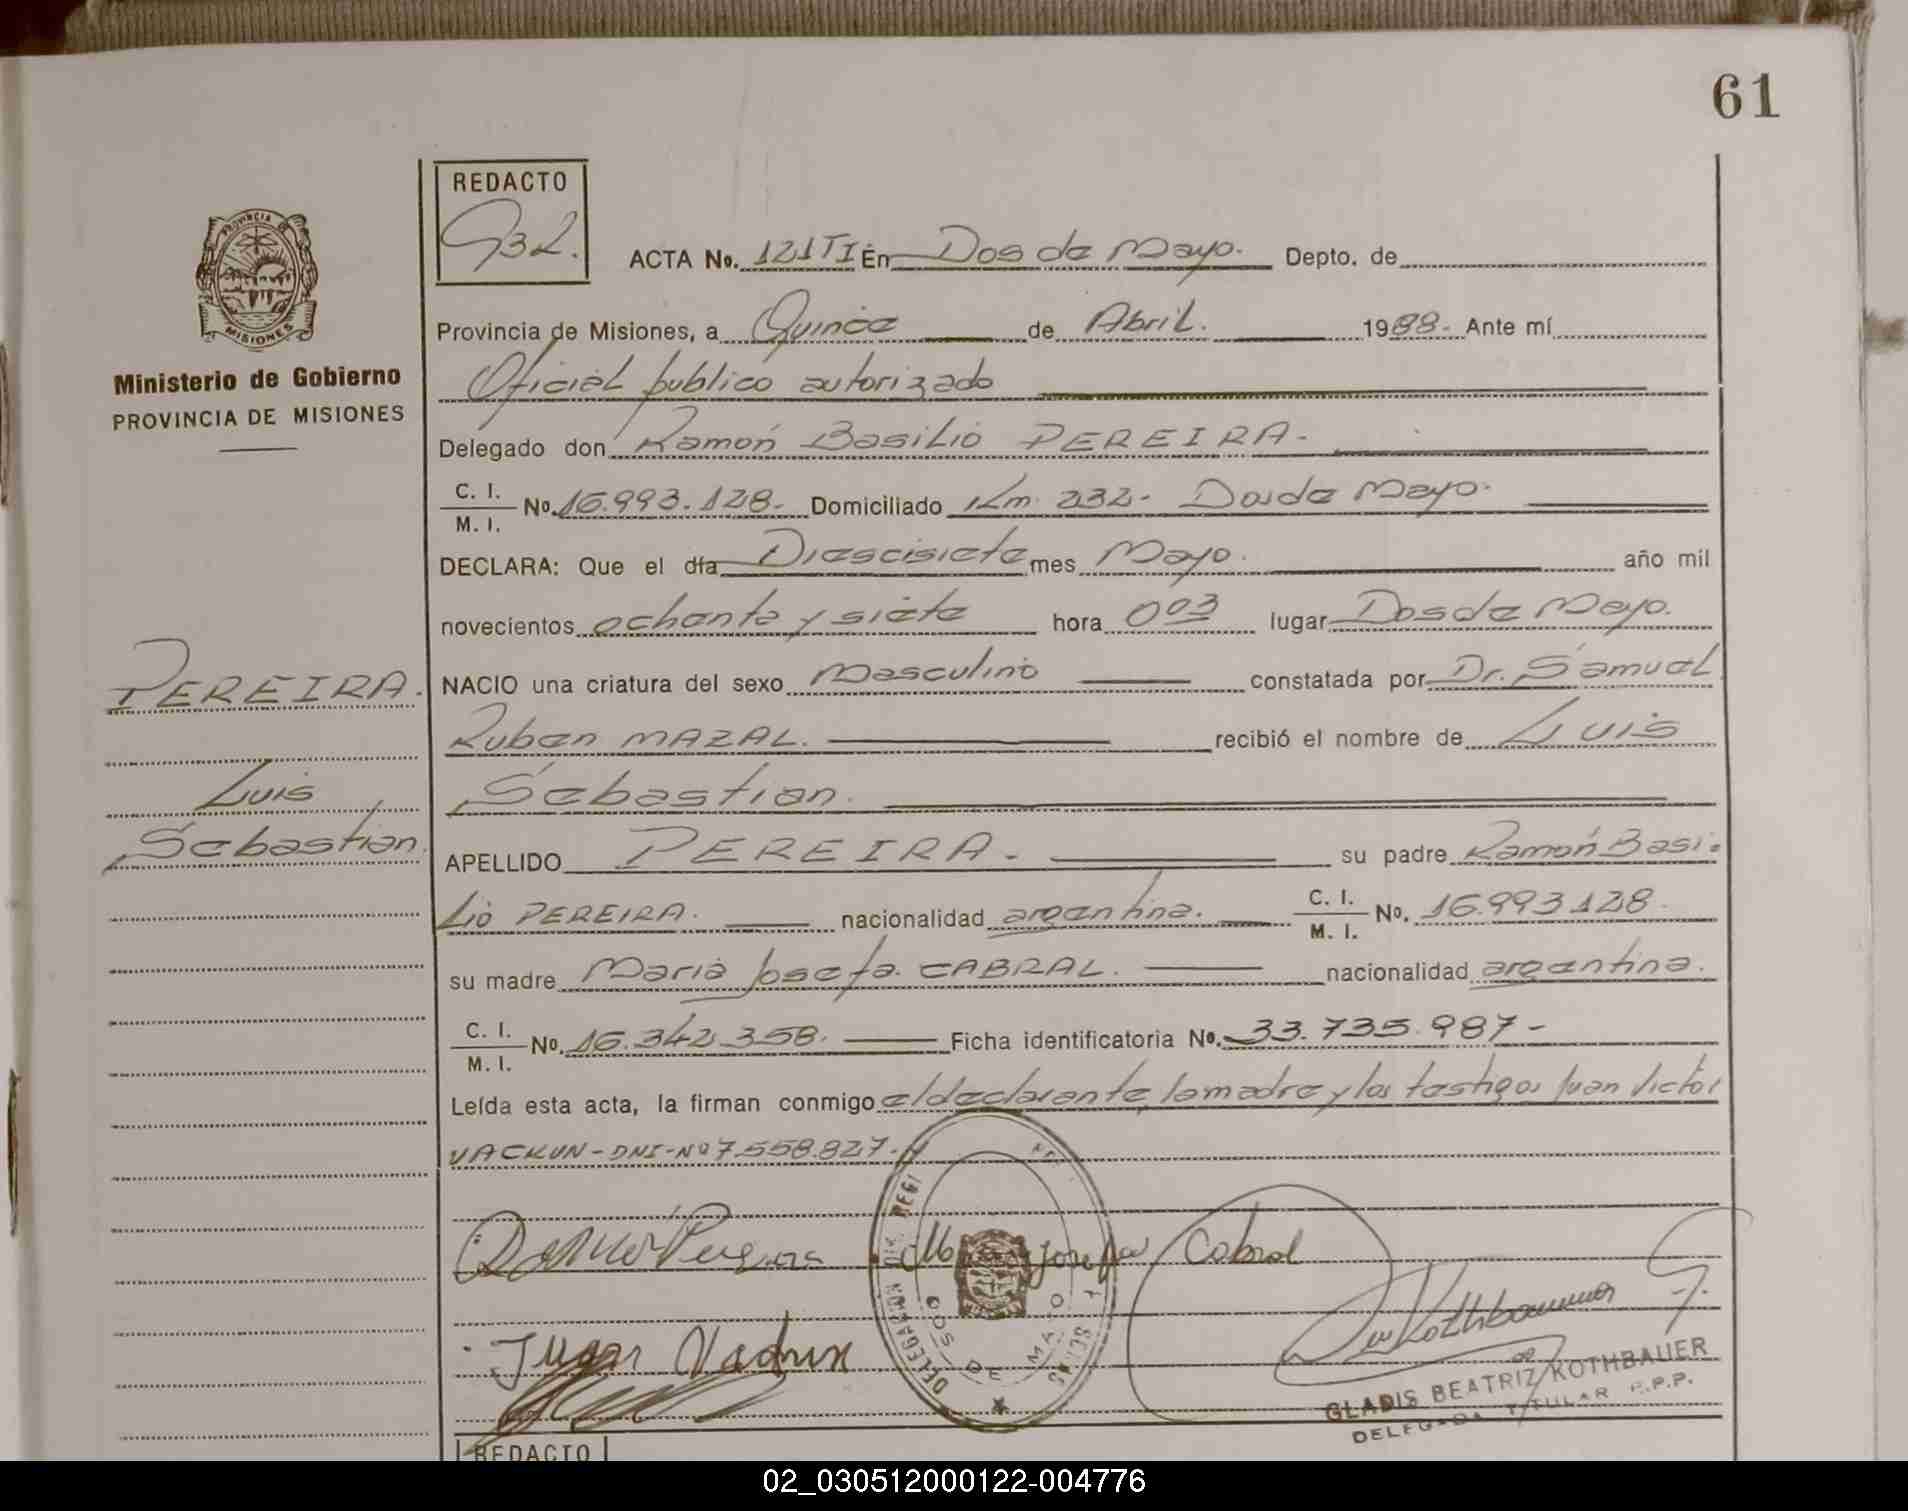 61
REDACTO
932.
ACTA No. 121 TI En Dos de Mayo. Depto. de
Provincia de Misiones, a Quince de Abril. 1988.- Ante mí
Oficial publico autorizado
Delegado don Ramón Basilio PEREIRA.-
C. I.
M. I.
No. 16.993.128.- Domiciliado Km. 232.- Dos de Mayo.-
DECLARA: Que el día Diescisiete mes Mayo. año mil
novecientos ochenta y siete hora 003 lugar Dos de Mayo.
NACIO una criatura del sexo Masculino constatada por Dr. Samuel
Ruben MAZAL. recibió el nombre de Luis
Sebastian.
APELLIDO PEREIRA.- su padre Ramón Basi-
lio PEREIRA. nacionalidad argentina. C. I.
M. I.
No. 16.993.128.
su madre Maria Josefa CABRAL. nacionalidad argentina.
C. I.
M. I.
No. 16.342.358. Ficha identificatoria No. 33.735.987-
Leída esta acta, la firman conmigo el declarante, la madre y los testigos Juan Victor
VACKUN-DNI-Nº 7.558.827.-y
Josefa Cabral
Juan
DELEGACION DIS. REGI
DOS DE MAYO
GLADIS BEATRIZ KOTHBAUER
DELEGADA TITULAR R.P.P.
REDACTO
PROVINCIA DE
MISIONES
Ministerio de Gobierno
PROVINCIA DE MISIONES
PEREIRA.
Luis
Sebastian.
02_030512000122-004776